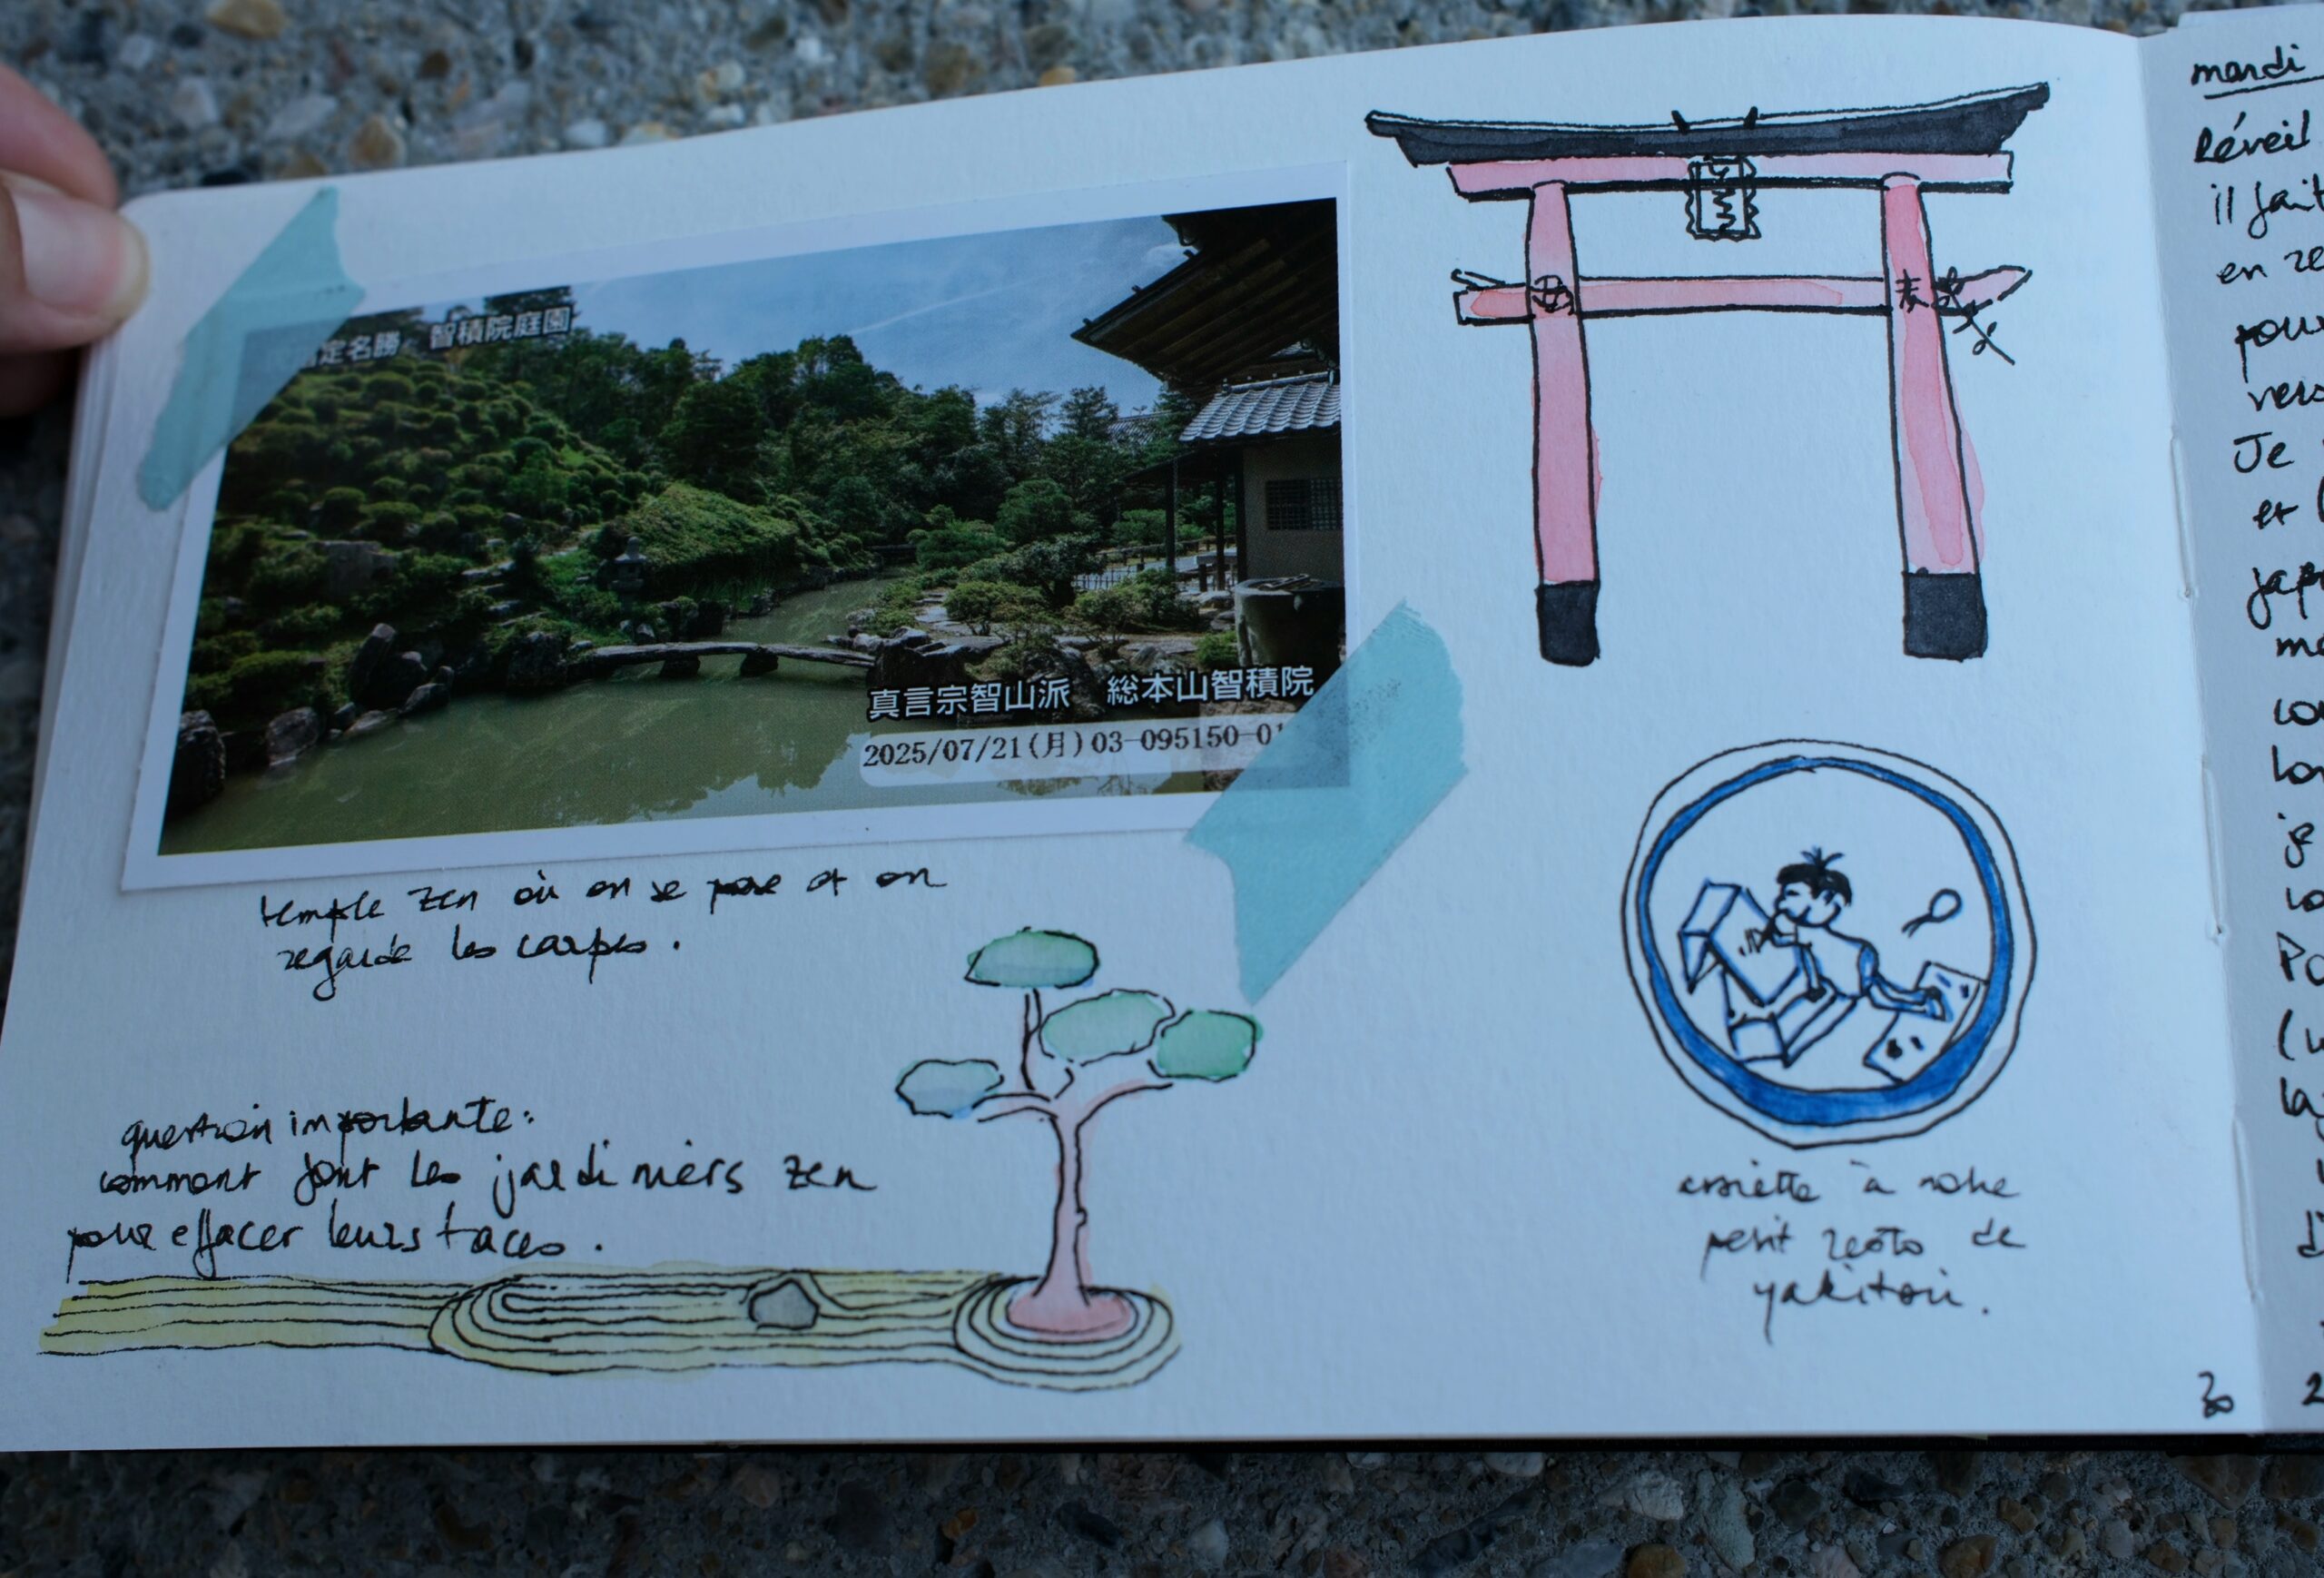 指定名勝　智積院庭園
真言宗智山派　総本山智積院
2025/07/21(月)03-095150-01
temple zen où on se pose et on
regarde les carpes.
question importante:
comment font les jardiniers zen
pour effacer leurs traces.
assiette à notre
petit resto de
yakitori.
30
mardi
Réveil
il fait
en
pour
vers
Je
et
je
2